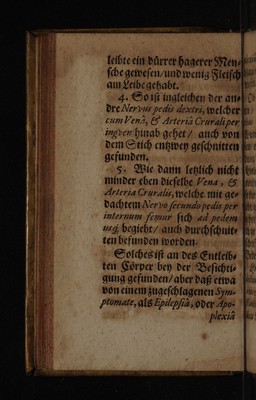 leibte ein dürrer hagerer Men-
sche gewesen/und wenig Fleisch
am Leibe gehabt.
4. So ist ingleichen der an-
dre Nervus pedis dextri, welcher
cum Venâ, & Arteriâ Crurali per
ingven hinab gehet/ auch von
dem Stich entzwey geschnitten
gefunden.
5. Wie dann letzlich nicht
minder eben dieselbe Vena, &
Arteria Cruralis, welche mit ge-
dachtem Nervo secundo pedis per
internum femur sich ad pedem
usq; begiebt/ auch durchschnit-
ten befunden worden.
Solches ist an des Entleib-
ten Cörper bey der Besichti-
gung gefunden/ aber daß etwa
von einem zugeschlagenen Sym-
ptomate, als Epilepsiâ, oder Apo-
plexiâ